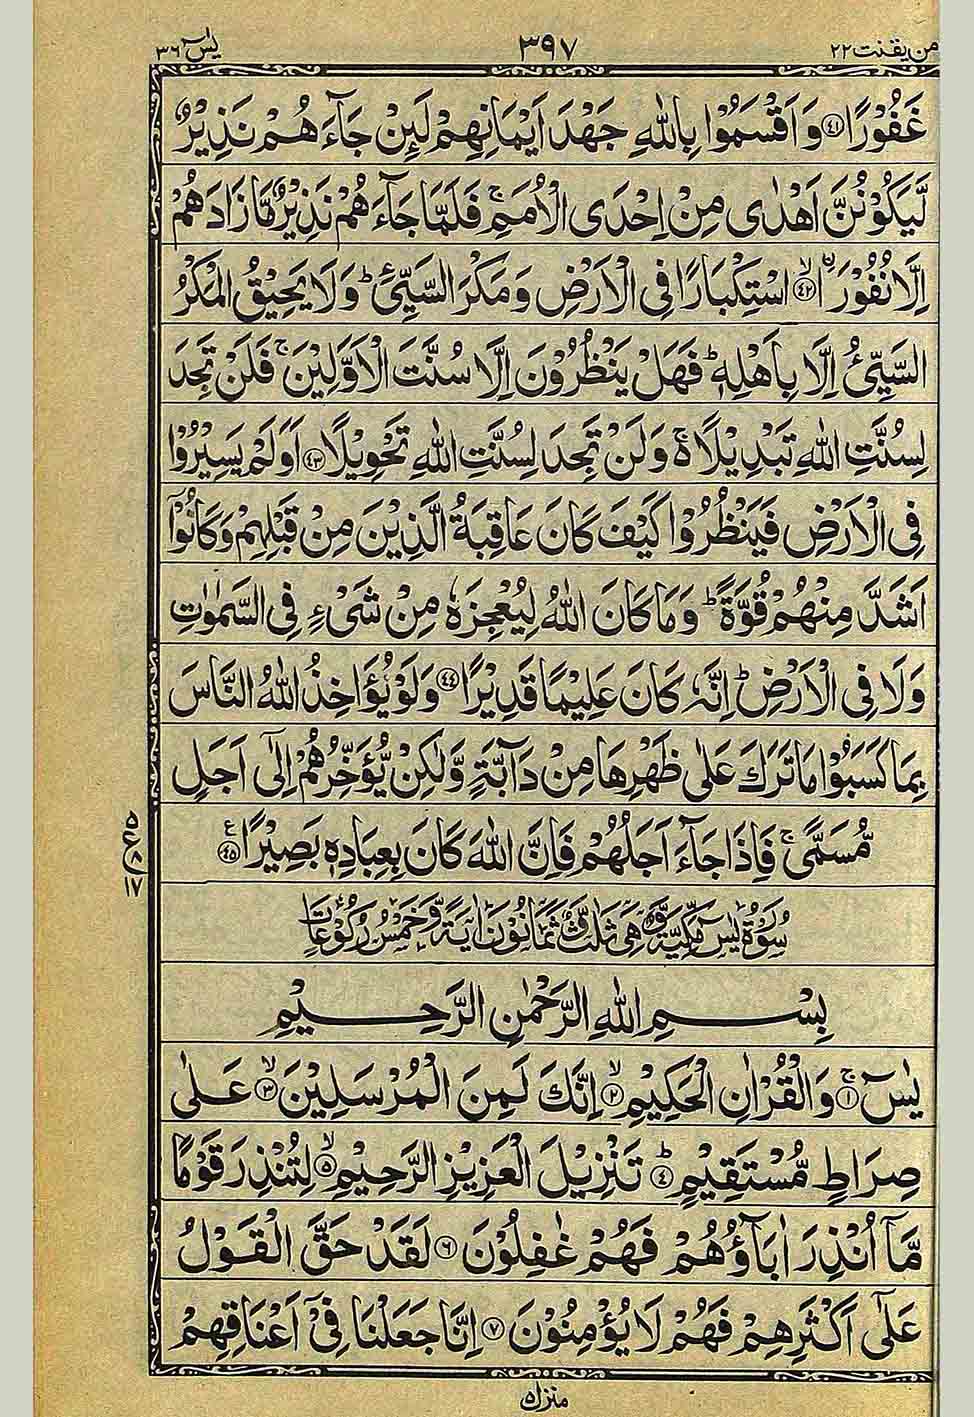 من یقنت ۲۲
۳۹۷
یٰسٓ ۳۶
غَفُوْرًا ﴿۴۱﴾ وَاَقْسَمُوْا بِاللّٰهِ جَهْدَ اَيْمَانِهِمْ لَىِٕنْ جَآءَهُمْ نَذِيْرٌ
لَّيَكُوْنُنَّ اَهْدٰى مِنْ اِحْدَى الْاُمَمِ ۚ فَلَمَّا جَآءَهُمْ نَذِيْرٌ مَّا زَادَهُمْ
اِلَّا نُفُوْرَاۨ ۙ﴿۴۲﴾ اسْتِكْبَارًا فِى الْاَرْضِ وَمَكْرَ السَّيِّئِ ؕ وَلَا يَحِيْقُ الْمَكْرُ
السَّيِّئُ اِلَّا بِاَهْلِهٖ ؕ فَهَلْ يَنْظُرُوْنَ اِلَّا سُنَّتَ الْاَوَّلِيْنَ ۚ فَلَنْ تَجِدَ
لِسُنَّتِ اللّٰهِ تَبْدِيْلًا ۚ۬ وَلَنْ تَجِدَ لِسُنَّتِ اللّٰهِ تَحْوِيْلًا ﴿۴۳﴾ اَوَلَمْ يَسِيْرُوْا
فِى الْاَرْضِ فَيَنْظُرُوْا كَيْفَ كَانَ عَاقِبَةُ الَّذِيْنَ مِنْ قَبْلِهِمْ وَكَانُوْۤا
اَشَدَّ مِنْهُمْ قُوَّةً ؕ وَمَا كَانَ اللّٰهُ لِيُعْجِزَهٗ مِنْ شَىْءٍ فِى السَّمٰوٰتِ
وَلَا فِى الْاَرْضِ ؕ اِنَّهٗ كَانَ عَلِيْمًا قَدِيْرًا ﴿۴۴﴾ وَلَوْ يُؤَاخِذُ اللّٰهُ النَّاسَ
بِمَا كَسَبُوْا مَا تَرَكَ عَلٰى ظَهْرِهَا مِنْ دَآبَّةٍ وَّلٰكِنْ يُّؤَخِّرُهُمْ اِلٰٓى اَجَلٍ
مُّسَمًّى ۚ فَاِذَا جَآءَ اَجَلُهُمْ فَاِنَّ اللّٰهَ كَانَ بِعِبَادِهٖ بَصِيْرًا ﴿۴۵﴾ ع
۵
ع
۸
۱۷
سُوْرَةُ يٰسٓ مَكِّيَّةٌ وَّهِىَ ثَلٰثٌ وَّثَمَانُوْنَ اٰيَةً وَّخَمْسُ رُكُوْعَاتٍ
بِسْمِ اللّٰهِ الرَّحْمٰنِ الرَّحِيْمِ
يٰسٓ ۚ﴿۱﴾ وَالْقُرْاٰنِ الْحَكِيْمِ ۙ﴿۲﴾ اِنَّكَ لَمِنَ الْمُرْسَلِيْنَ ۙ﴿۳﴾ عَلٰى
صِرَاطٍ مُّسْتَقِيْمٍ ؕ﴿۴﴾ تَنْزِيْلَ الْعَزِيْزِ الرَّحِيْمِ ۙ﴿۵﴾ لِتُنْذِرَ قَوْمًا
مَّاۤ اُنْذِرَ اٰبَآؤُهُمْ فَهُمْ غٰفِلُوْنَ ﴿۶﴾ لَقَدْ حَقَّ الْقَوْلُ
عَلٰٓى اَكْثَرِهِمْ فَهُمْ لَا يُؤْمِنُوْنَ ﴿۷﴾ اِنَّا جَعَلْنَا فِىْۤ اَعْنَاقِهِمْ
منزل ۵